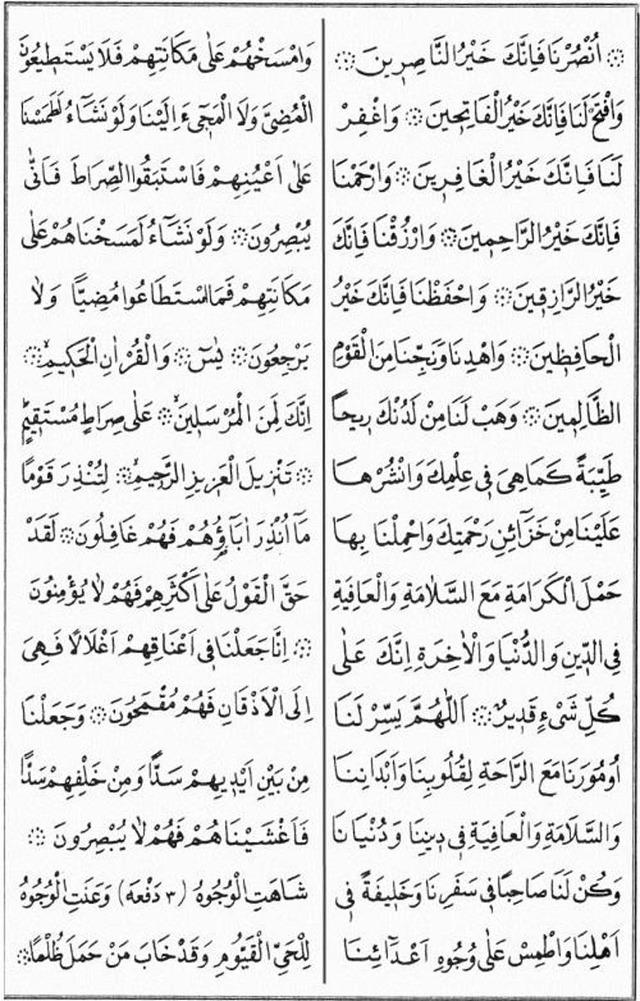 ۞ اُنْصُرْنَا فَاِنَّكَ خَيْرُ النَّاصِرِينَ ۞
وَافْتَحْ لَنَا فَاِنَّكَ خَيْرُ الْفَاتِحِينَ ۞ وَاغْفِرْ
لَنَا فَاِنَّكَ خَيْرُ الْغَافِرِينَ ۞ وَارْحَمْنَا
فَاِنَّكَ خَيْرُ الرَّاحِمِينَ ۞ وَارْزُقْنَا فَاِنَّكَ
خَيْرُ الرَّازِقِينَ ۞ وَاحْفَظْنَا فَاِنَّكَ خَيْرُ
الْحَافِظِينَ ۞ وَاهْدِنَا وَنَجِّنَا مِنَ الْقَوْمِ
الظَّالِمِينَ ۞ وَهَبْ لَنَا مِنْ لَدُنْكَ رِيحاً
طَيِّبَةً كَمَا هِيَ فِي عِلْمِكَ وَانْشُرْهَا
عَلَيْنَا مِنْ خَزَائِنِ رَحْمَتِكَ وَاحْمِلْنَا بِهَا
حَمْلَ الْكَرَامَةِ مَعَ السَّلَامَةِ وَالْعَافِيَةِ
فِي الدِّينِ وَالدُّنْيَا وَالْاٰخِرَةِ اِنَّكَ عَلٰى
كُلِّ شَيْءٍ قَدِيرٌ ۞ اَللّٰهُمَّ يَسِّرْ لَنَا
اُمُورَنَا مَعَ الرَّاحَةِ لِقُلُوبِنَا وَاَبْدَانِنَا
وَالسَّلَامَةِ وَالْعَافِيَةِ فِي دِينِنَا وَدُنْيَانَا
وَكُنْ لَنَا صَاحِبًا فِي سَفَرِنَا وَخَلِيفَةً فِي
اَهْلِنَا وَاطْمِسْ عَلٰى وُجُوهِ اَعْدَائِنَا
وَامْسَخْهُمْ عَلٰى مَكَانَتِهِمْ فَلَا يَسْتَطِيعُونَ
الْمُضِيَّ وَلَا الْمَجِيءَ اِلَيْنَا وَلَوْ نَشَاءُ لَطَمَسْنَا
عَلٰى اَعْيُنِهِمْ فَاسْتَبَقُوا الصِّرَاطَ فَاَنّٰى
يُبْصِرُونَ ۞ وَلَوْ نَشَاءُ لَمَسَخْنَاهُمْ عَلٰى
مَكَانَتِهِمْ فَمَا اسْتَطَاعُوا مُضِيًّا وَلَا
يَرْجِعُونَ ۞ يٰسٓ ۞ وَالْقُرْاٰنِ الْحَكِيمِ ۞
اِنَّكَ لَمِنَ الْمُرْسَلِينَ ۞ عَلٰى صِرَاطٍ مُسْتَقِيمٍ
۞ تَنْزِيلَ الْعَزِيزِ الرَّحِيمِ ۞ لِتُنْذِرَ قَوْمًا
مَا اُنْذِرَ اٰبَاؤُهُمْ فَهُمْ غَافِلُونَ ۞ لَقَدْ
حَقَّ الْقَوْلُ عَلٰى اَكْثَرِهِمْ فَهُمْ لَا يُؤْمِنُونَ
۞ اِنَّا جَعَلْنَا فِي اَعْنَاقِهِمْ اَغْلَالًا فَهِيَ
اِلَى الْاَذْقَانِ فَهُمْ مُقْمَحُونَ ۞ وَجَعَلْنَا
مِنْ بَيْنِ اَيْدِيهِمْ سَدًّا وَمِنْ خَلْفِهِمْ سَدًّا
فَاَغْشَيْنَاهُمْ فَهُمْ لَا يُبْصِرُونَ ۞
شَاهَتِ الْوُجُوهُ (٣ دَفْعَه) وَعَنَتِ الْوُجُوهُ
لِلْحَيِّ الْقَيُّومِ وَقَدْ خَابَ مَنْ حَمَلَ ظُلْمًا ۞